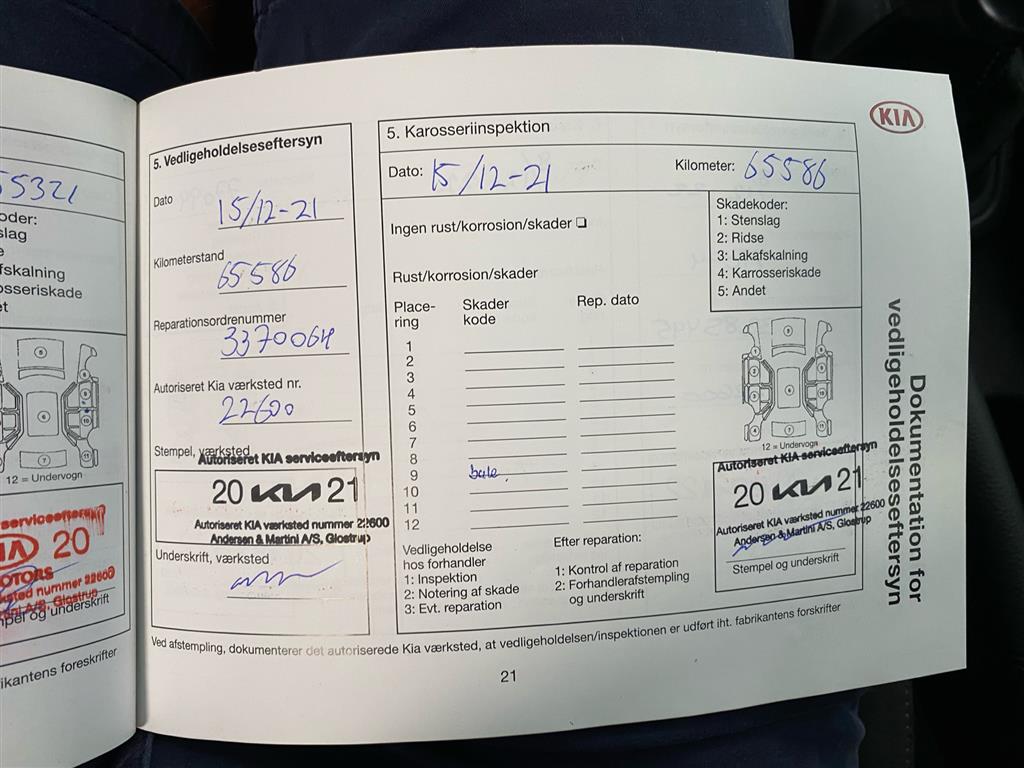 55321
oder:
nslag
e
afskalning
osseriskade
et
12 = Undervogn
serviceeftersyn
KIA 20
MOTORS
ksted nummer 22600
ni A/S, Glostrup
mpel og underskrift
ikantens foreskrifter
5. Vedligeholdelseseftersyn
Dato
15/12-21
Kilometerstand
65586
Reparationsordrenummer
3370064
Autoriseret Kia værksted nr.
22600
Stempel, værksted
Autoriseret KIA serviceeftersyn
20 KIA 21
Autoriseret KIA værksted nummer 22600
Andersen & Martini A/S, Glostrup
Underskrift, værksted
5. Karosseriinspektion
Dato: 15/12-21 Kilometer: 65586
Ingen rust/korrosion/skader ❏
Rust/korrosion/skader
Skadekoder:
1: Stenslag
2: Ridse
3: Lakafskalning
4: Karrosseriskade
5: Andet
Place-
ring
Skader
kode
Rep. dato
1
2
3
4
5
6
7
8
9 bule.
10
11
12
12 = Undervogn
Autoriseret KIA serviceeftersyn
20 KIA 21
Autoriseret KIA værksted nummer 22600
Andersen & Martini A/S, Glostrup
Stempel og underskrift
Vedligeholdelse
hos forhandler
1: Inspektion
2: Notering af skade
3: Evt. reparation
Efter reparation:
1: Kontrol af reparation
2: Forhandlerafstempling
og underskrift
Ved afstempling, dokumenterer det autoriserede Kia værksted, at vedligeholdelsen/inspektionen er udført iht. fabrikantens forskrifter
21
KIA
Dokumentation for
vedligeholdelseseftersyn